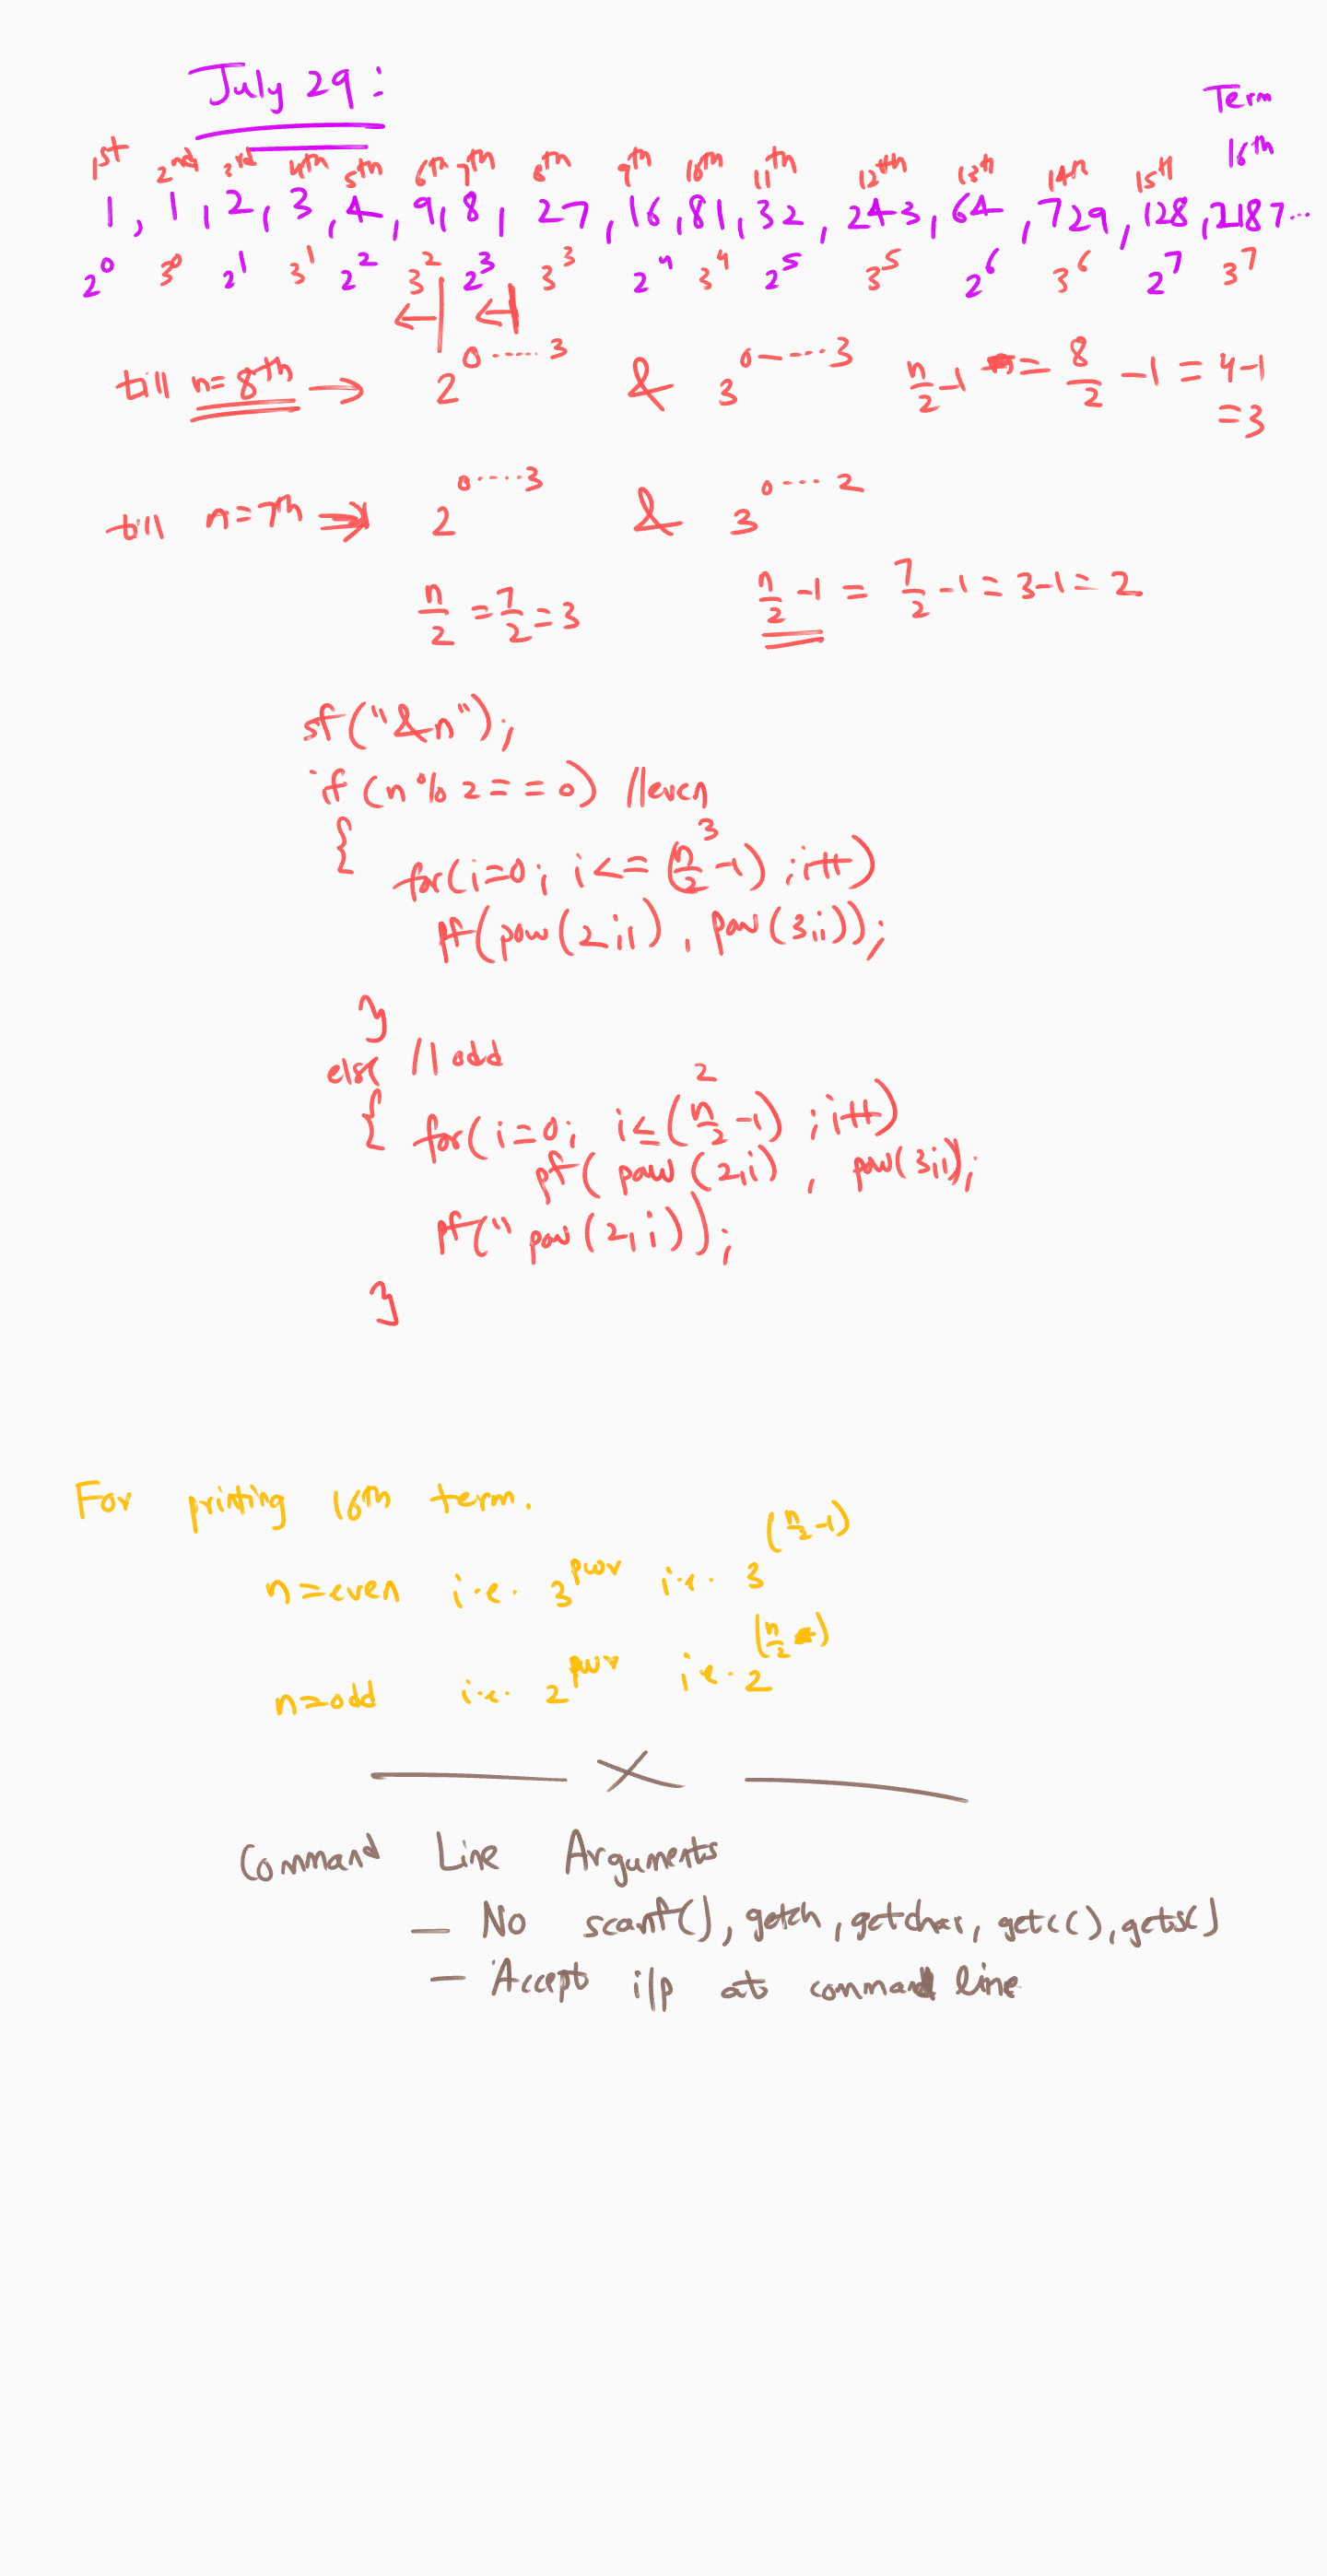 July 29:
Term
1st 2nd 3rd 4th 5th 6th 7th 8th 9th 10th 11th 12th 13th 14th 15th 16th
1, 1, 2, 3, 4, 9, 8, 27, 16, 81, 32, 243, 64, 729, 128, 2187...
2^0 3^0 2^1 3^1 2^2 3^2 2^3 3^3 2^4 3^4 2^5 3^5 2^6 3^6 2^7 3^7
till n=8th → 2^0.....3 & 3^0----..3 n/2 -1 = 8/2 -1 = 4-1
=3
till n=7th ⇒ 2^0.....3 & 3^0....2
n/2 = 7/2 = 3 n/2 -1 = 7/2 -1 = 3-1 = 2
sf("&n");
if (n%2==0) //even
{
3
for(i=0; i<=(n/2 -1) ; i++)
pf(pow(2,i), pow(3,i));
}
else //odd
2
{ for(i=0; i≤(n/2 -1) ; i++)
pf( pow(2,i) , pow(3,i);
pf(" pow(2,i));
}
For printing 16th term.
n=even i.e. 3^pwr i.e. 3^(n/2 -1)
n=odd i.e. 2^pwr i.e. 2^(n/2)
X
Command Line Arguments
— No scanf(), getch, getchar, getc(), gets()
— Accept i/p at command line